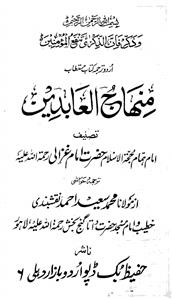 بسم الله الرحمن الرحيم
وذكر فان الذكرى تنفع المؤمنين
اردو ترجمہ کتاب مستطاب
منہاج العابدین
تصنیف
امام ہمام حجۃ الاسلام حضرت امام غزالی رحمۃ اللہ علیہ
ترجمہ و حواشی
از مولانا محمد سعید احمد نقشبندی
خطیب و امام مسجد حضرت داتا گنج بخش رحمۃ اللہ علیہ لاہور
ناشر
حفیظ بک ڈپو اردو بازار دہلی ۶